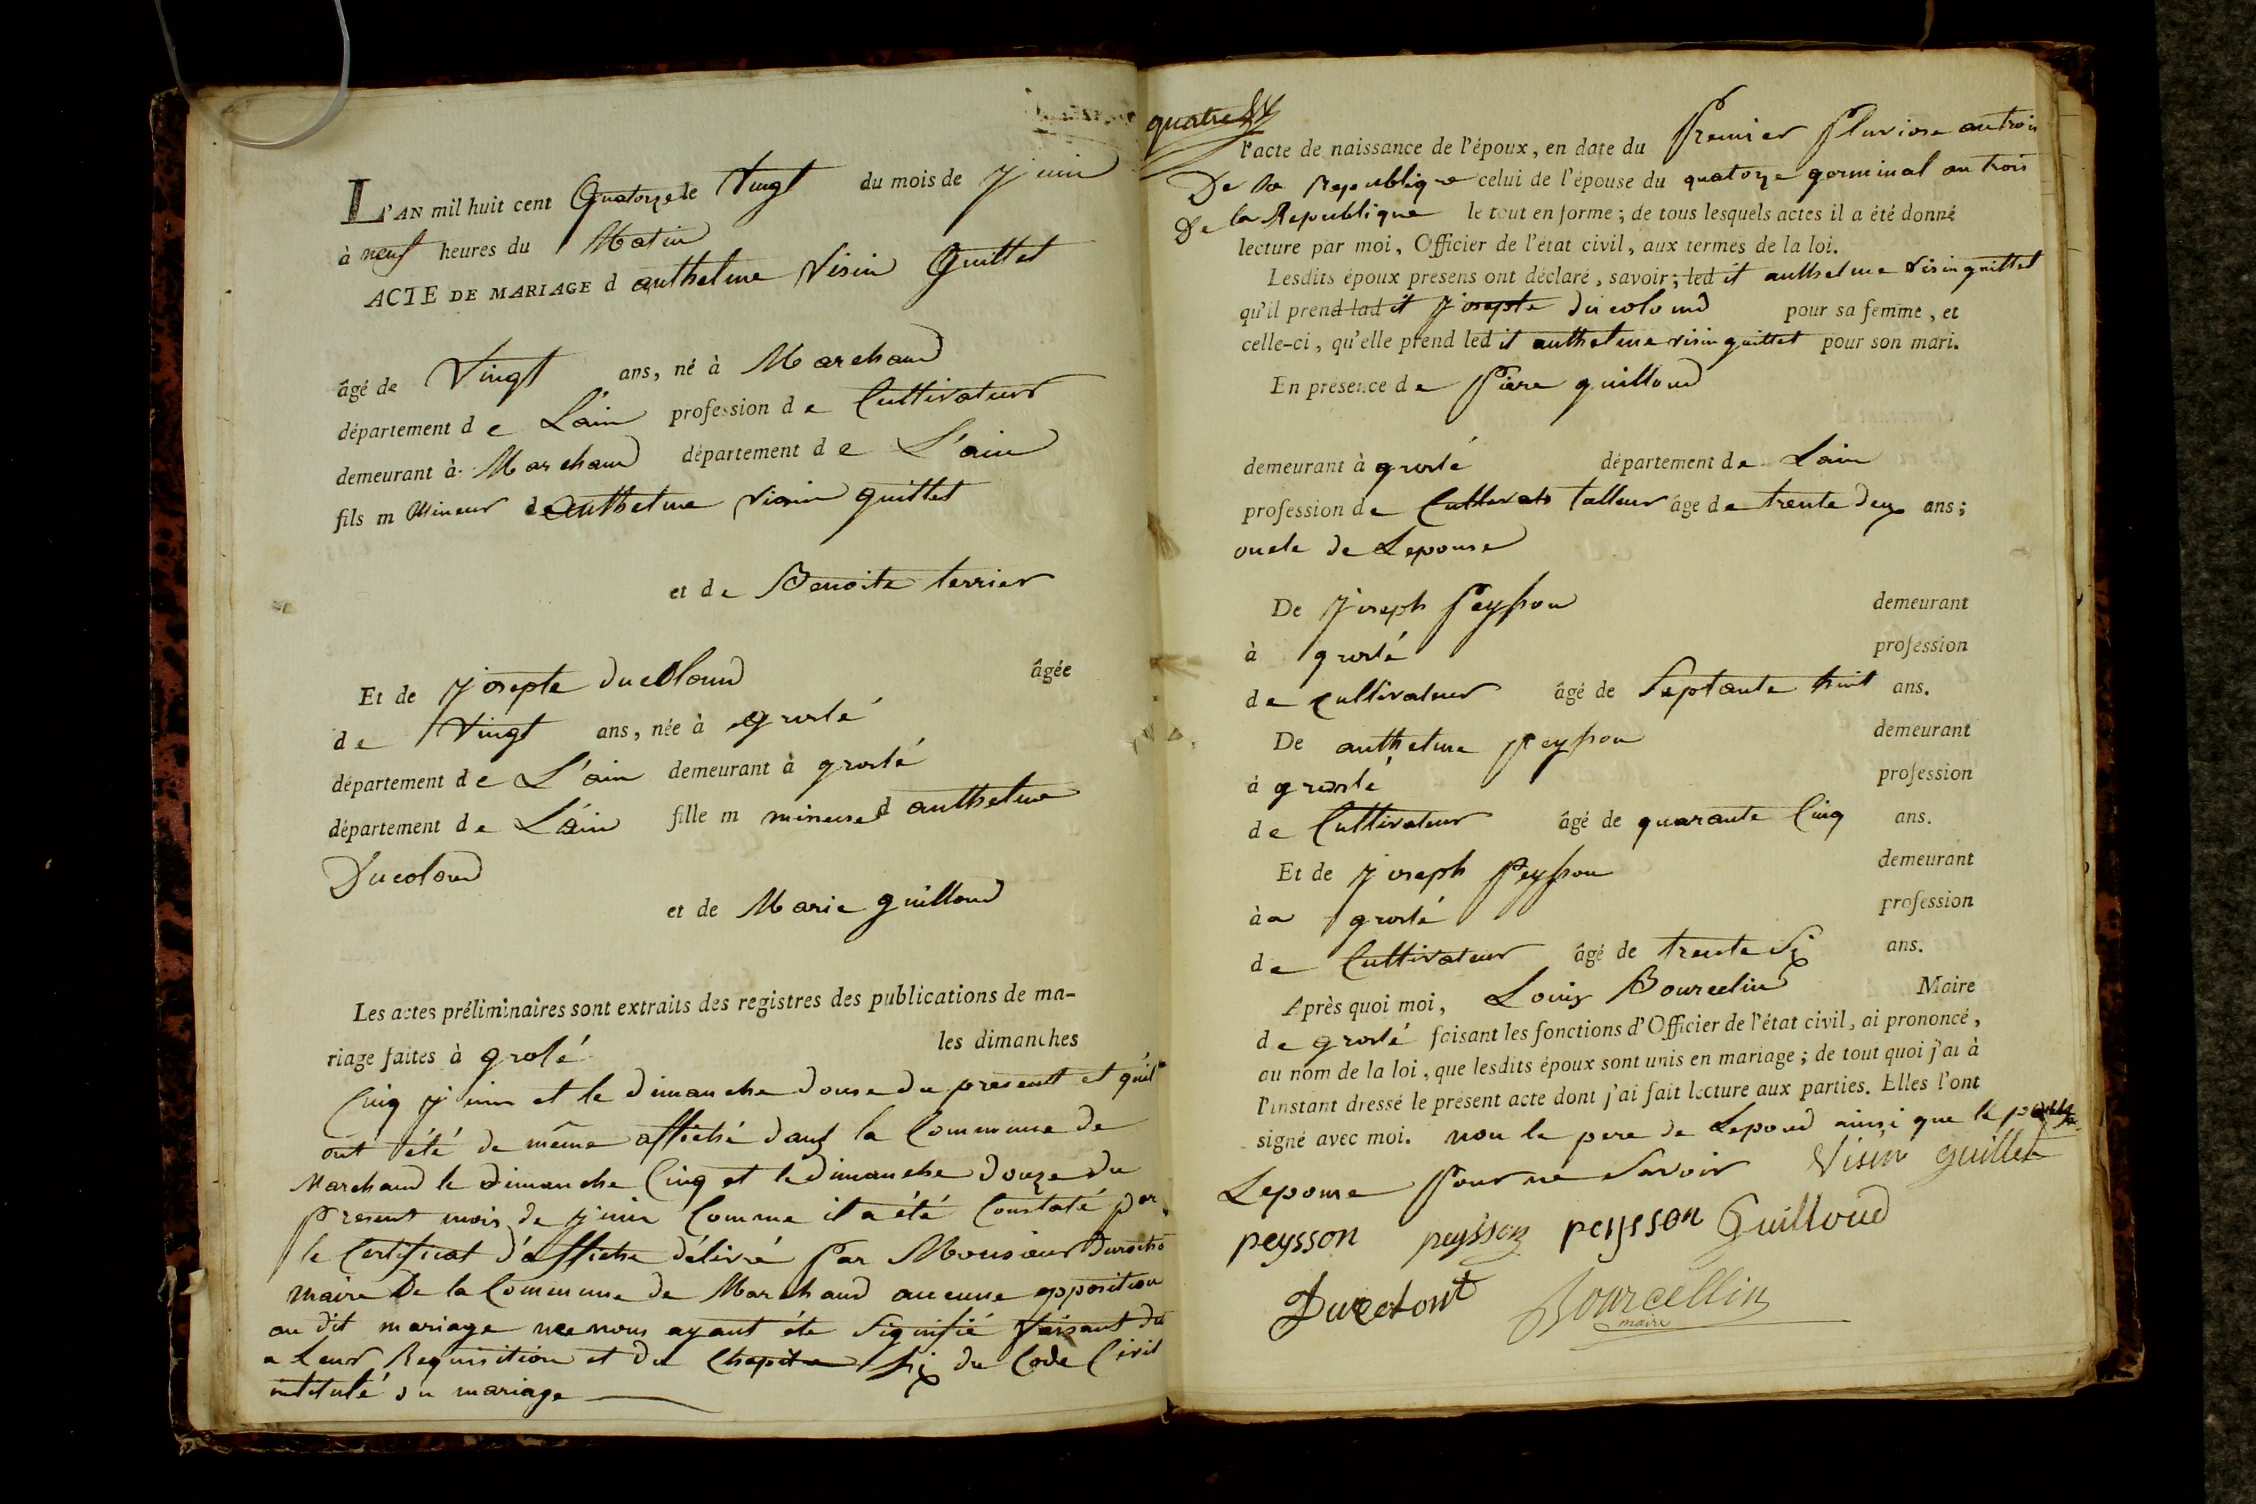 L'AN mil huit cent Quatorze le Vingt du mois de juin
à neuf heures du Matin
ACTE DE MARIAGE d anthelme Visin Guillet
âgé de Vingt ans, né à Marchand
département de L'ain profession de Cultivateur
demeurant à Marchand département de L'ain
fils m mineur de anthelme visin guillet
et de Benoite terrier
Et de josepte ducoloud âgée
de Vingt ans, née à groslé
département de L'ain demeurant à groslé
département de L'ain fille m mineure d anthelme
Ducoloud
et de Marie guilloud
Les actes préliminaires sont extraits des registres des publications de ma-
riage faites à grolé les dimanches
Cinq juin et le dimanche douse du present et quil
ont été de même affiché dans la Commune de
Marchand le dimanche Cinq et le dimanche douze du
present mois de juin Comme il a été Constaté par
le Certificat d'affiche délivré par Monsieur
maire De la Commune de Marchand aucune opposition
au dit mariage ne nous ayant éte Signifié faisant du
a Leur Requisition et du Chapitre six du Code Civil
intitulé du mariage
quatre
l'acte de naissance de l'époux, en date du Premier Pluviose an trois
De la Republique celui de l'épouse du quatorze germinal an trois
De la Republique le tout en forme; de tous lesquels actes il a été donné
lecture par moi, Officier de l'état civil, aux termes de la loi.
Lesdits époux présens ont déclaré, savoir; led it anthelme visin guillet
qu'il prend lad it josepte ducoloud pour sa femme, et
celle-ci, qu'elle prend led it anthelme visin guillet pour son mari.
En présence de Piere guilloud
demeurant à groslé département de Lain
profession de tailleur âgé de trente deux ans;
oncle de Lepouse
De joseph Peysson demeurant
à groslé profession
de cultivateur âgé de Septante huit ans.
De anthelme peysson demeurant
à groslé profession
de Cultivateur âgé de quarante Cinq ans.
Et de joseph Peysson demeurant
à a groslé profession
de Cultivateur âgé de trente Six ans.
Après quoi moi, Louis Bourcelin Maire
de groslé faisant les fonctions d'Officier de l'état civil, ai prononcé,
au nom de la loi, que lesdits époux sont unis en mariage; de tout quoi j'ai à
l'instant dressé le présent acte dont j'ai fait lecture aux parties. Elles l'ont
signé avec moi. non le pere de Lepoud ainsi que le
Lepouse pour ne Savoir Visin guillet
peysson peysson peysson Guilloud
Ducolont Bourcellin
maire